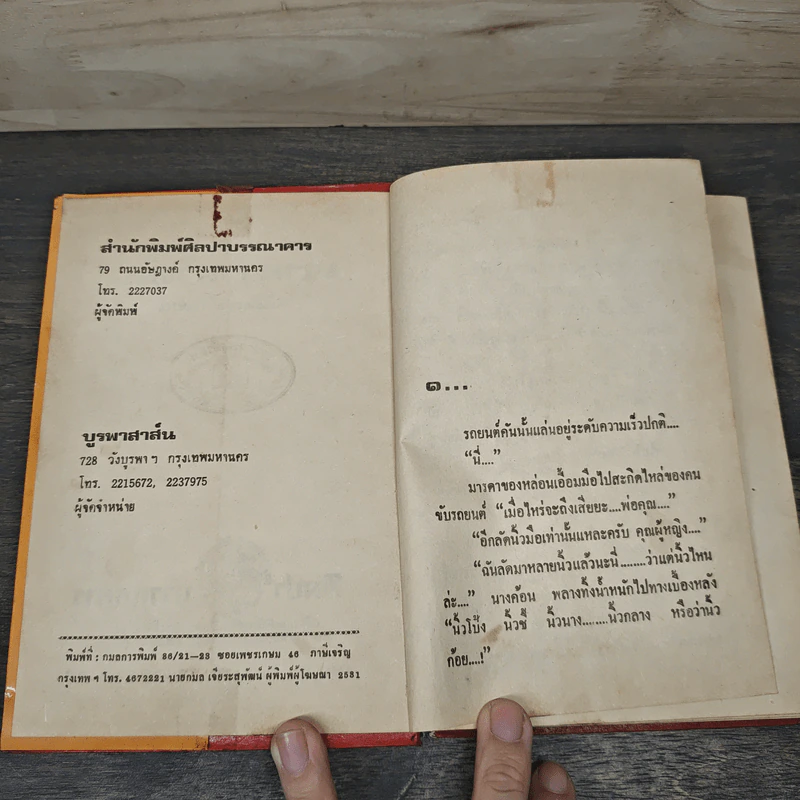 สำนักพิมพ์ศิลปาบรรณาคาร
79 ถนนอัษฎางค์ กรุงเทพมหานคร
โทร. 2227037
ผู้จัดพิมพ์
บูรพาสาส์น
728 วังบูรพา ฯ กรุงเทพมหานคร
โทร. 2215672, 2237975
ผู้จัดจำหน่าย
พิมพ์ที่ : กมลการพิมพ์ 86/21-23 ซอยเพชรเกษม 46 ภาษีเจริญ
กรุงเทพ ฯ โทร. 4672221 นายกมล เจียระสุพัฒน์ ผู้พิมพ์ผู้โฆษณา 2531
๑...
รถยนต์คันนั้นแล่นอยู่ระดับความเร็วปกติ....
“นี่....”
มารดาของหล่อนเอื้อมมือไปสะกิดไหล่ของคน
ขับรถยนต์ “เมื่อไหร่จะถึงเสียยะ....พ่อคุณ....”
“อีกลัดนิ้วมือเท่านั้นแหละครับ คุณผู้หญิง....”
“ฉันลัดมาหลายนิ้วแล้วนะนี่........ว่าแต่นิ้วไหน
ล่ะ....” นางค้อน พลางทิ้งน้ำหนักไปทางเบื้องหลัง
“นิ้วโป้ง นิ้วชี้ นิ้วนาง........นิ้วกลาง หรือว่านิ้ว
ก้อย....!”